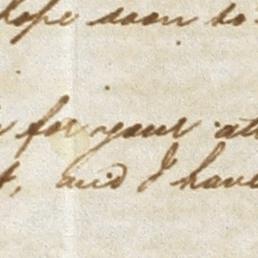 hope soon to
for your att
t, and I have